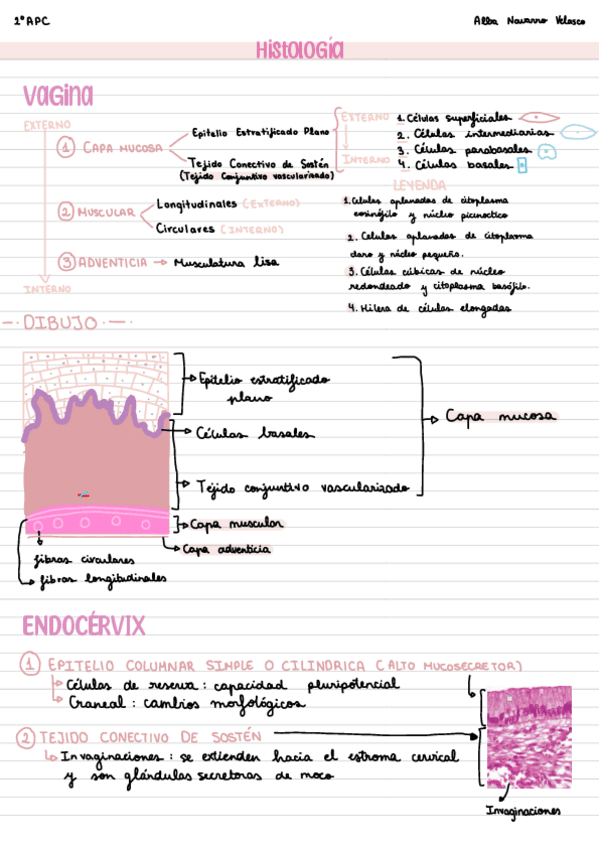 1º APC
Alba Navarro Velasco
Histología
Vagina
EXTERNO
1 CAPA MUCOSA
Epitelio Estratificado Plano
Tejido Conectivo de Sostén
(Tejido Conjuntivo vascularizado)
EXTERNO
INTERNO
1. Células superficiales
2. Células intermediarias
3. Células parabasales
4. Células basales
LEYENDA
1. Celulas aplanadas de citoplasma
eosinófilo y núcleo picnoctico
2. Celulas aplanadas de citoplasma
claro y núcleo pequeño.
3. Células cúbicas de núcleo
redondeado y citoplasma basófilo.
4. Hilera de células elongadas
2 MUSCULAR
Longitudinales (EXTERNO)
Circulares (INTERNO)
3 ADVENTICIA → Musculatura lisa
INTERNO
DIBUJO
Epitelio estratificado
plano
Células basales
Tejido conjuntivo vascularizado
Capa mucosa
Capa muscular
Capa adventicia
fibras circulares
fibras longitudinales
ENDOCÉRVIX
1 EPITELIO COLUMNAR SIMPLE O CILINDRICA (ALTO MUCOSECRETOR)
Células de reserva: capacidad pluripotencial
Craneal: cambios morfológicos
2 TEJIDO CONECTIVO DE SOSTÉN
Invaginaciones: se extienden hacia el estroma cervical
y son glándulas secretoras de moco
Invaginaciones